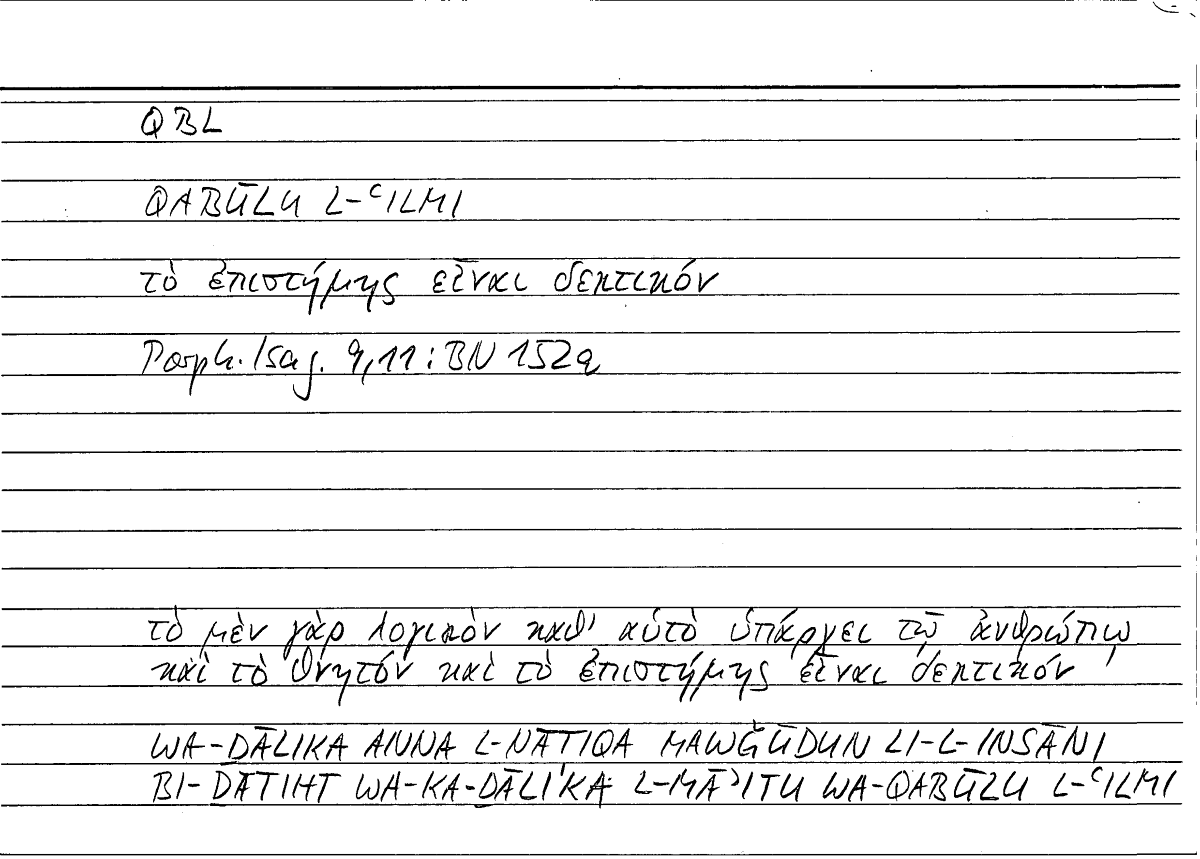 QBL
QABŪLU L-ʿILMI
τὸ ἐπιστήμης εἶναι δεκτικόν
Porph. Isag. 9,11 : BN 152a
τὸ μὲν γὰρ λογικὸν καθ' αὑτὸ ὑπάρχει τῷ ἀνθρώπῳ
καὶ τὸ θνητὸν καὶ τὸ ἐπιστήμης εἶναι δεκτικόν
WA-ḎĀLIKA ANNA L-NĀṬIQA MAWǦŪDUN LI-L-INSĀNI
BI-ḎĀTIHI WA-KA-ḎĀLIKA L-MĀʾITU WA-QABŪLU L-ʿILMI